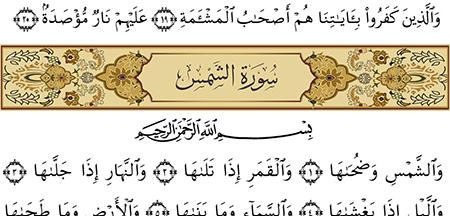 وَٱلَّذِينَ كَفَرُوا۟ بِـَٔايَـٰتِنَا هُمْ أَصْحَـٰبُ ٱلْمَشْـَٔمَةِ ﴿١٩﴾ عَلَيْهِمْ نَارٌ مُّؤْصَدَةٌۢ ﴿٢٠﴾
سُورَةُ الشَّمْسِ
بِسْمِ ٱللَّهِ ٱلرَّحْمَـٰنِ ٱلرَّحِيمِ
وَٱلشَّمْسِ وَضُحَىٰهَا ﴿١﴾ وَٱلْقَمَرِ إِذَا تَلَىٰهَا ﴿٢﴾ وَٱلنَّهَارِ إِذَا جَلَّىٰهَا ﴿٣﴾
وَٱلَّيْلِ إِذَا يَغْشَىٰهَا ﴿٤﴾ وَٱلسَّمَآءِ وَمَا بَنَىٰهَا ﴿٥﴾ وَٱلْأَرْضِ وَمَا طَحَىٰهَا